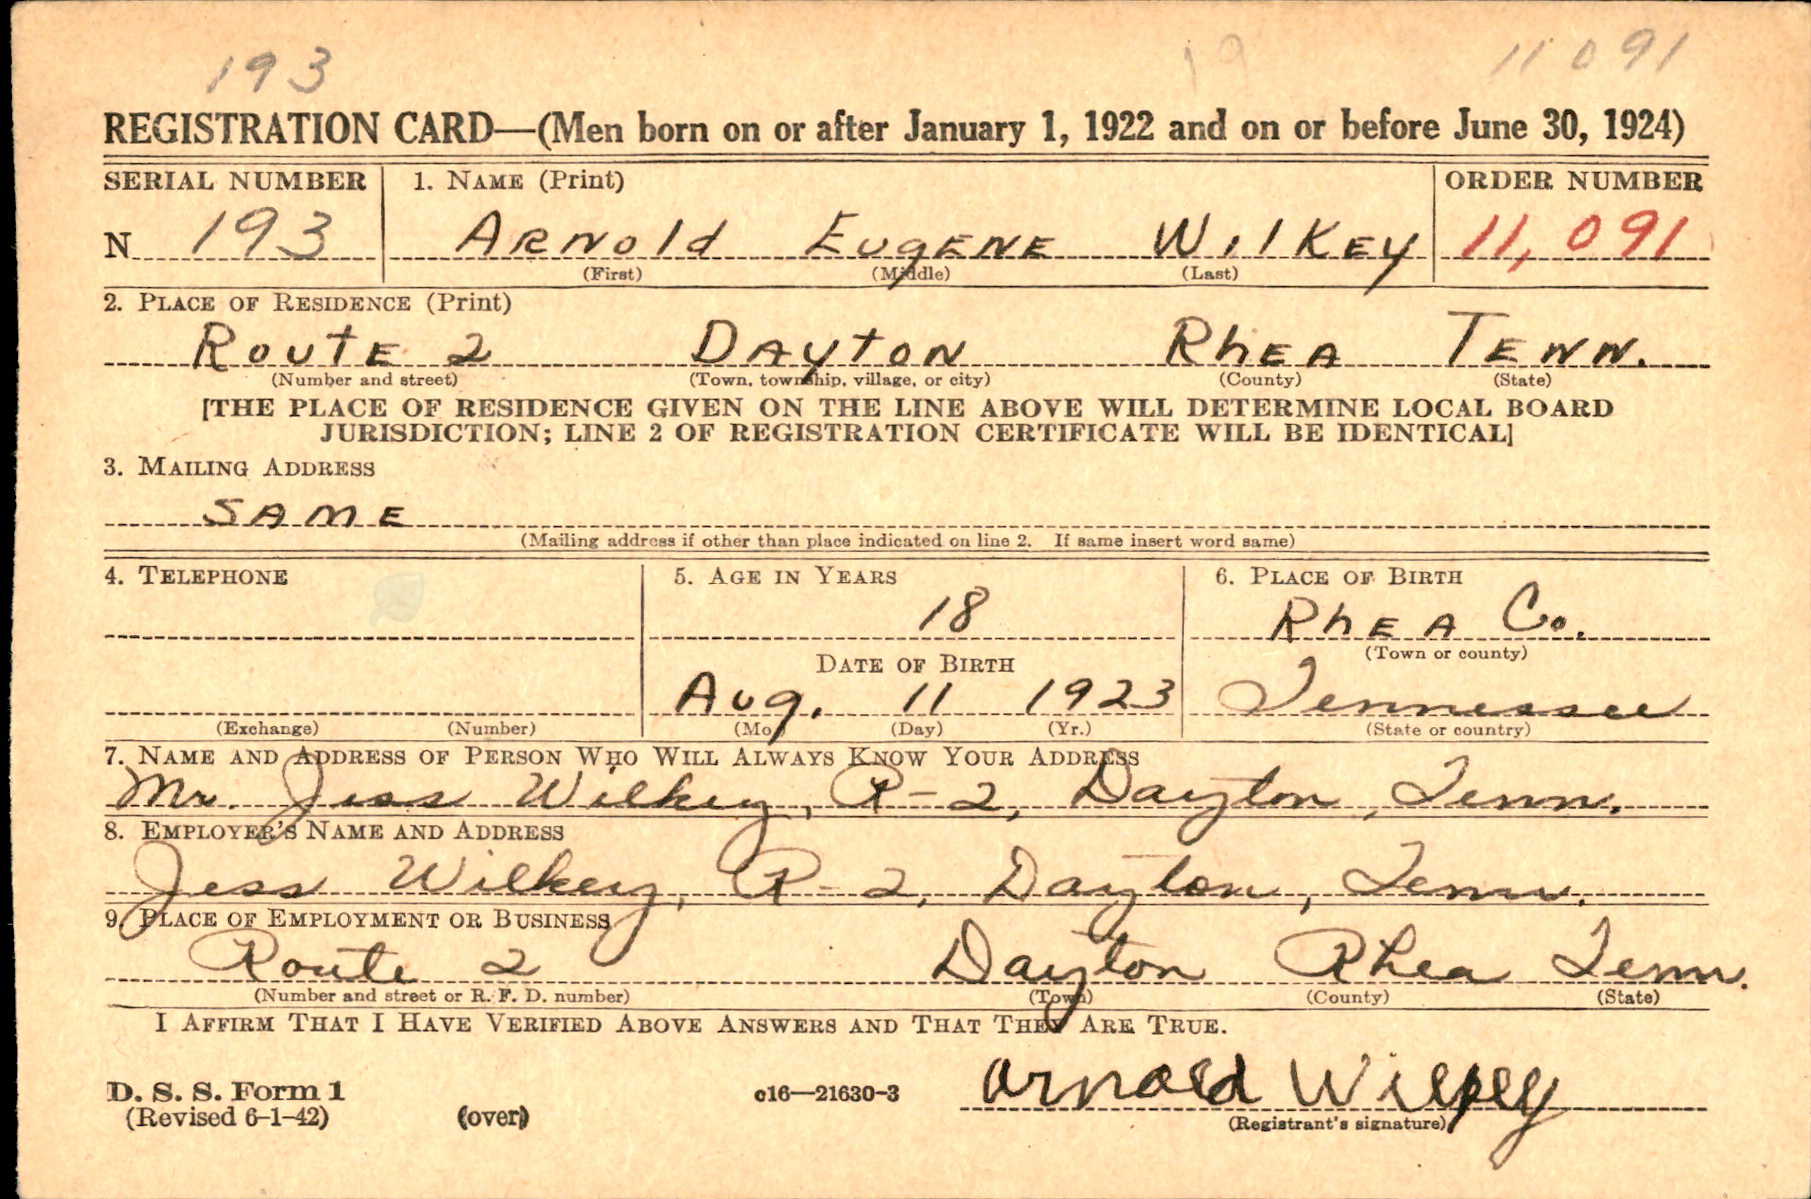 193 19 11091
REGISTRATION CARD—(Men born on or after January 1, 1922 and on or before June 30, 1924)
SERIAL NUMBER 1. NAME (Print) ORDER NUMBER
N 193 ARNOld EUgENE WIlKEy 11,091
(First) (Middle) (Last)
2. PLACE OF RESIDENCE (Print)
ROUTE 2 DAyTON RhEA TENN.
(Number and street) (Town, township, village, or city) (County) (State)
[THE PLACE OF RESIDENCE GIVEN ON THE LINE ABOVE WILL DETERMINE LOCAL BOARD
JURISDICTION; LINE 2 OF REGISTRATION CERTIFICATE WILL BE IDENTICAL]
3. MAILING ADDRESS
SAME
(Mailing address if other than place indicated on line 2. If same insert word same)
4. TELEPHONE 5. AGE IN YEARS 6. PLACE OF BIRTH
18 RhEA Co.
DATE OF BIRTH (Town or county)
Aug. 11 1923 Tennessee
(Exchange) (Number) (Mo.) (Day) (Yr.) (State or country)
7. NAME AND ADDRESS OF PERSON WHO WILL ALWAYS KNOW YOUR ADDRESS
Mr. Jess Wilkey, R-2, Dayton, Tenn.
8. EMPLOYER'S NAME AND ADDRESS
Jess Wilkey, R-2, Dayton, Tenn.
9. PLACE OF EMPLOYMENT OR BUSINESS
Route 2 Dayton Rhea Tenn.
(Number and street or R. F. D. number) (Town) (County) (State)
I AFFIRM THAT I HAVE VERIFIED ABOVE ANSWERS AND THAT THEY ARE TRUE.
D. S. S. Form 1 c16—21630-3 Arnold Wilkey
(Revised 6-1-42) (over) (Registrant's signature)